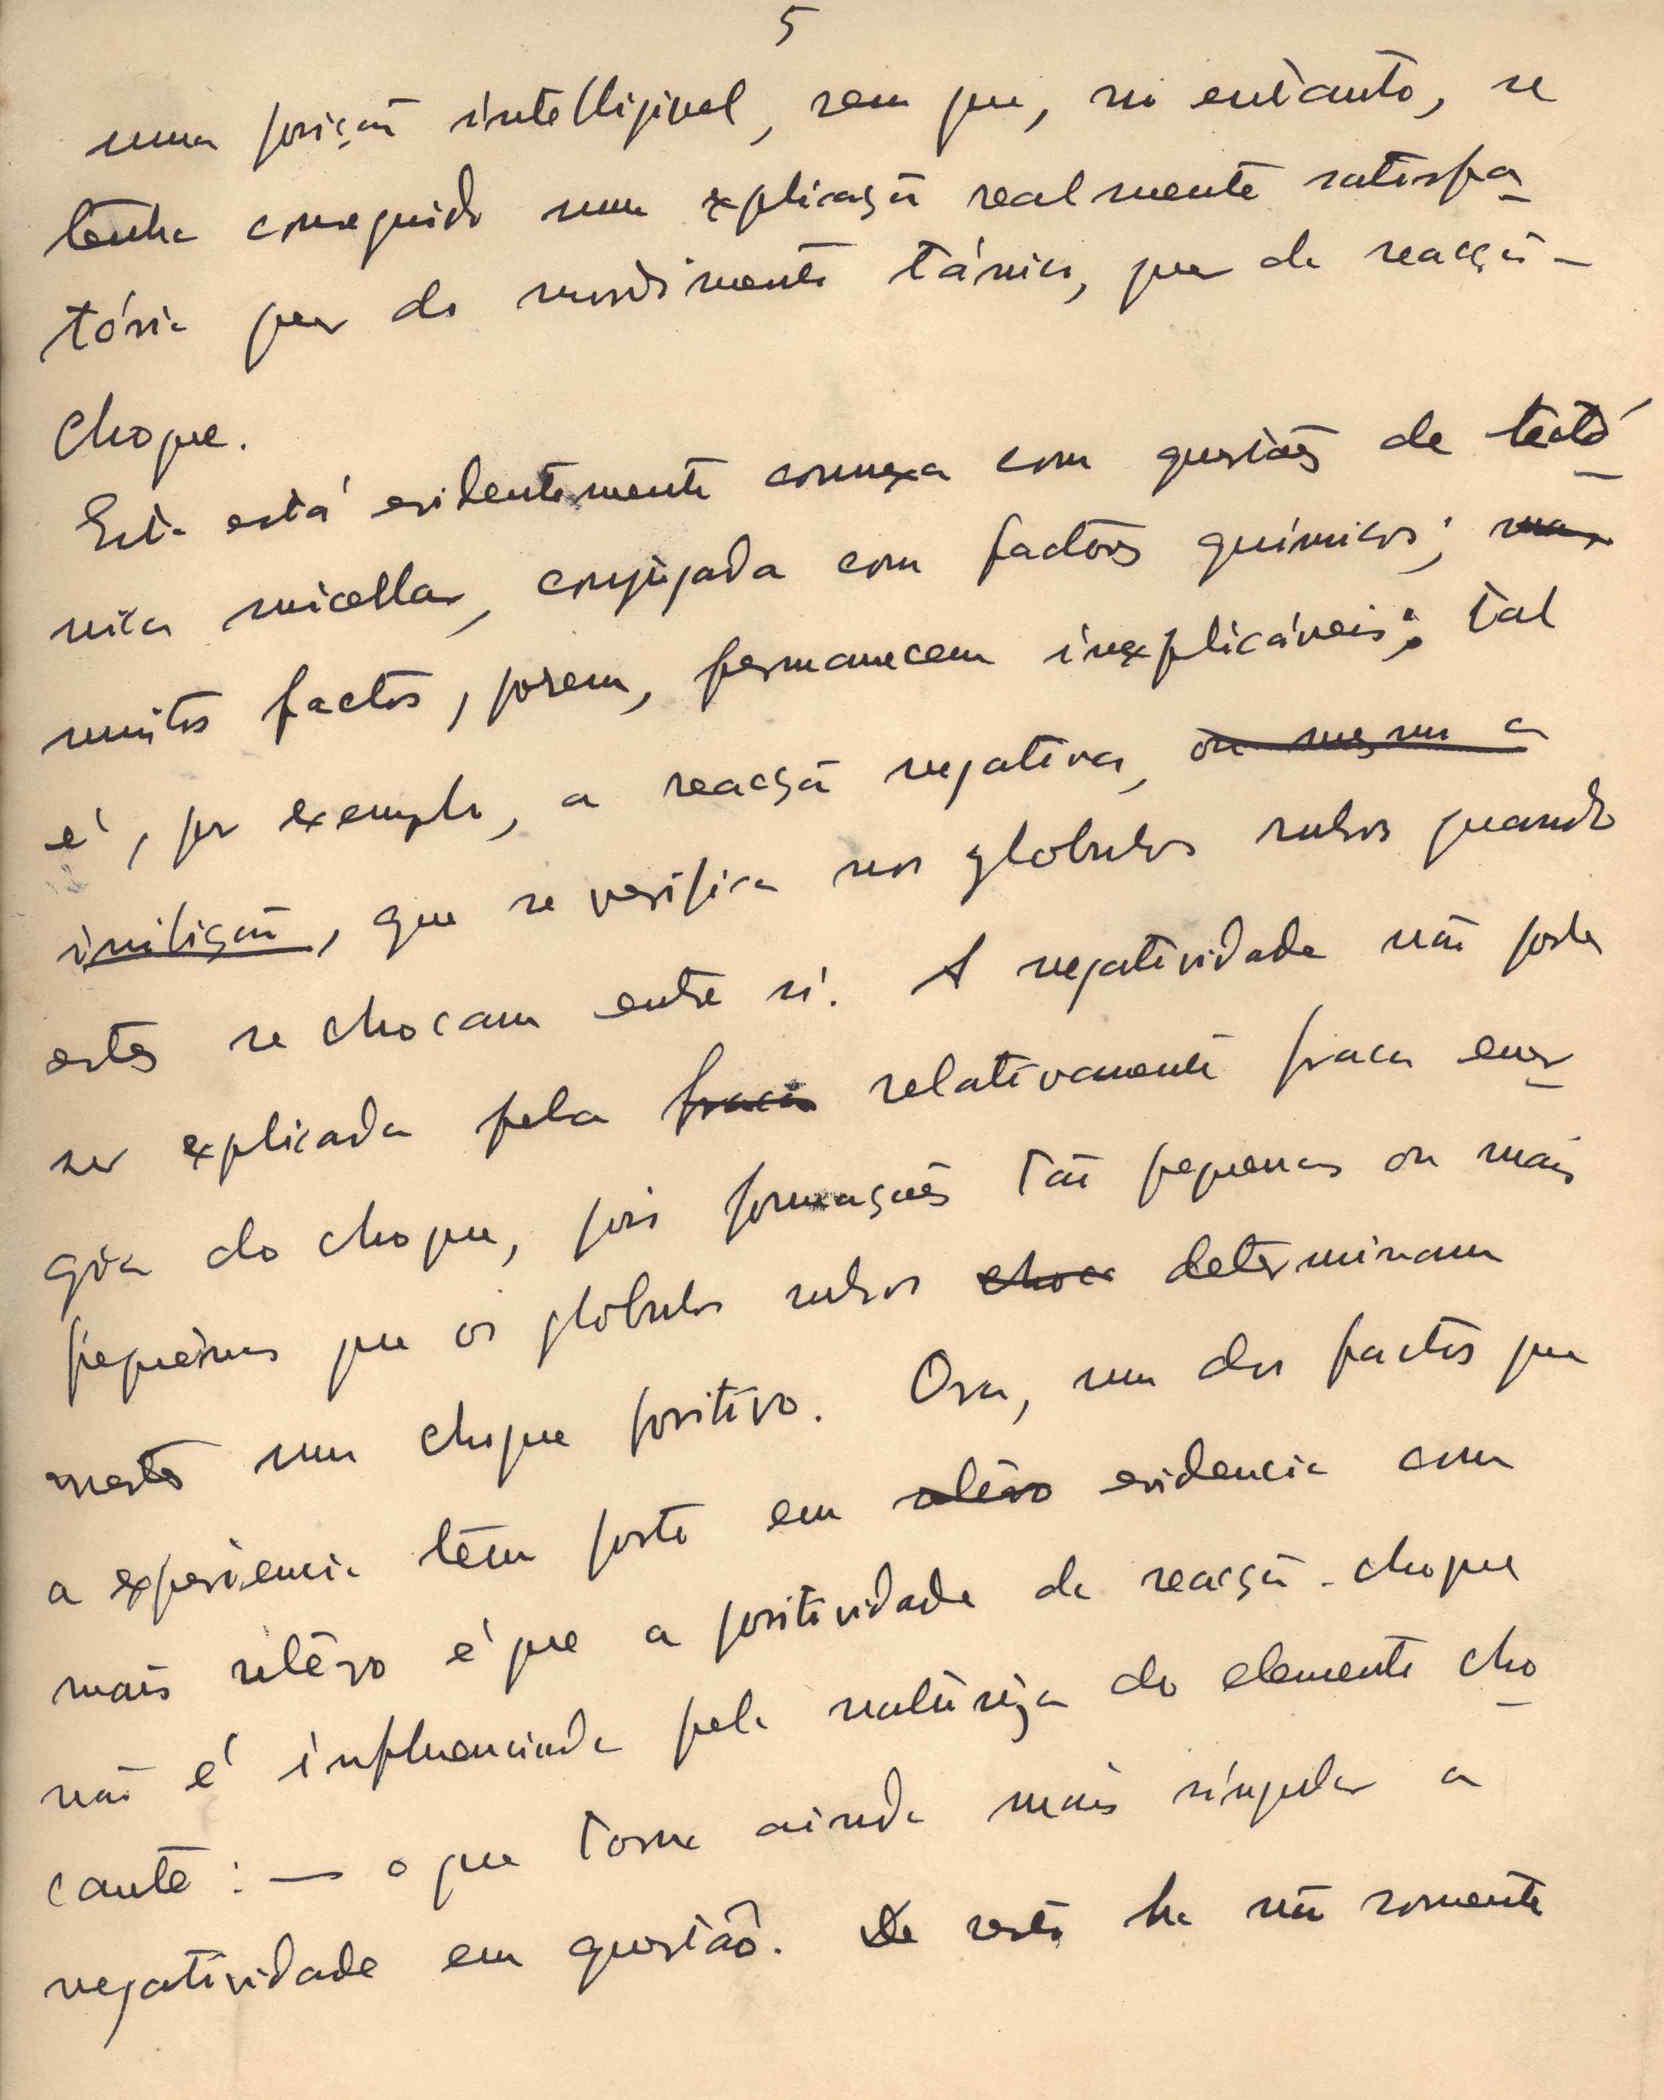 5
uma posição intelligivel, sem que, no entanto, se
tenha conseguido uma explicação realmente satisfa-
tória quer do mordimento tánico, quer da reacção-
choque.
Esta está evidentemente connexa com questões de tectó-
nica micellar, conjugada com factores químicos; mas
muitos factos, porem, permanecem inexplicáveis; tal
é, por exemplo, a reacção negativa, ou mesmo a
inibição, que se verifica nos globulos rubros quando
estes se chocam entre si. A negatividade não poder
ser explicada pela fraca relativamente fraca ener-
gia do choque, pois formações tão pequenas ou mais
pequenas que os glóbulos rubros choca determinam
nestes um choque positivo. Ora, um dos factos que
a experiencia têm posto em relêvo evidencia com
mais relêvo é que a positividade da reacção-choque
não é influenciada pela natureza do elemento cho-
cante: — o que torna ainda mais singular a
negatividade em questão. De resto ha não somente